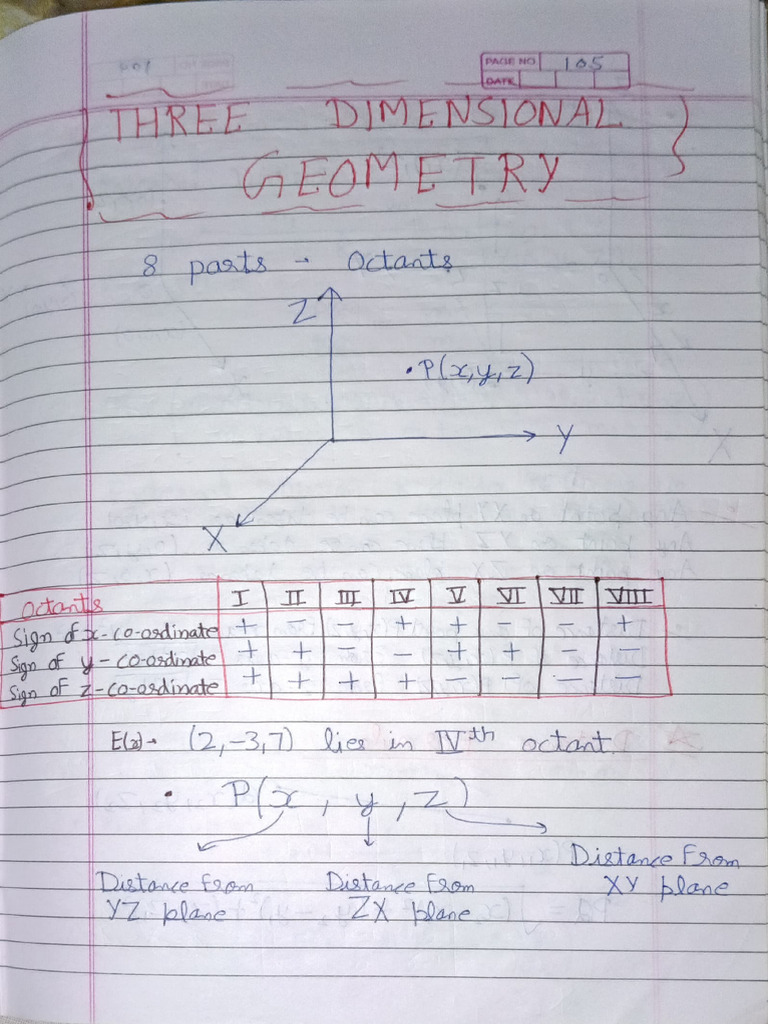 PAGE NO 105
DATE
THREE DIMENSIONAL
GEOMETRY
8 parts - Octants
Z
P(x,y,z)
Y
X
Octants I II III IV V VI VII VIII
Sign of x-co-ordinate + - - + + - - +
Sign of y-co-ordinate + + - - + + - -
Sign of z-co-ordinate + + + + - - - -
E(x)→ (2,-3,7) lies in IVth octant.
• P(x, y, z)
Distance From YZ plane
Distance From ZX plane
Distance From XY plane